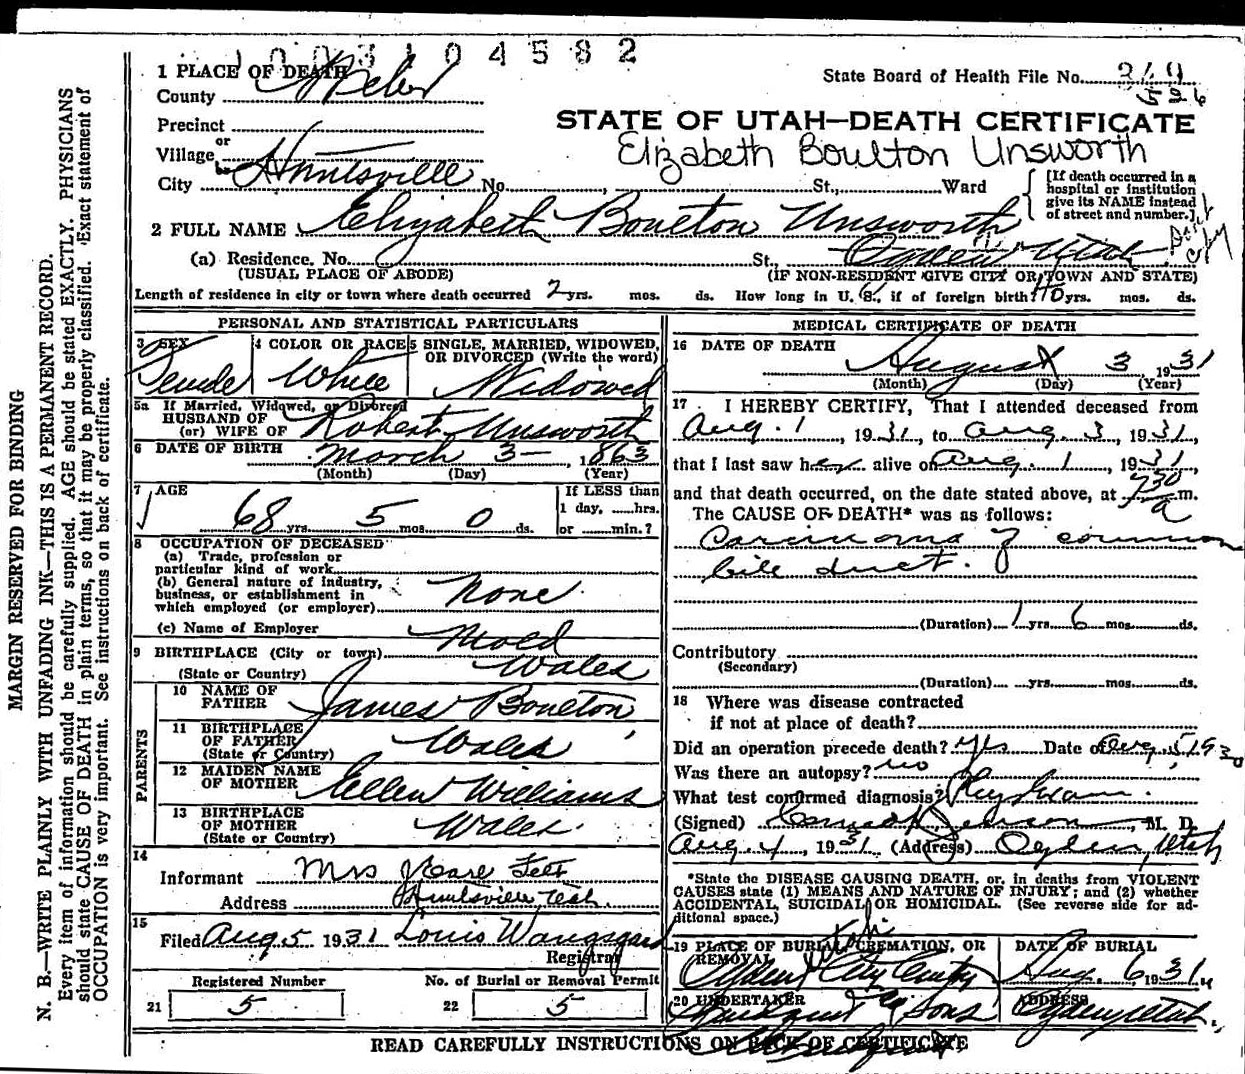 1003104582
1 PLACE OF DEATH
County Weber
State Board of Health File No. 349
526
Precinct
or
Village
City Huntsville No. , St., Ward
STATE OF UTAH—DEATH CERTIFICATE
Elizabeth Boulton Unsworth
[If death occurred in a
hospital or institution
give its NAME instead
of street and number.]
2 FULL NAME Elizabeth Boulton Unsworth
(a) Residence. No. St., Ogden Utah
(USUAL PLACE OF ABODE) (IF NON-RESIDENT GIVE CITY OR TOWN AND STATE)
Length of residence in city or town where death occurred 2 yrs. mos. ds. How long in U. S., if of foreign birth? 40 yrs. mos. ds.
PERSONAL AND STATISTICAL PARTICULARS
3 SEX 4 COLOR OR RACE 5 SINGLE, MARRIED, WIDOWED,
OR DIVORCED (Write the word)
Female White Widowed
5a If Married, Widowed, or Divorced
HUSBAND OF
(or) WIFE OF Robert Unsworth
6 DATE OF BIRTH March 3 — , 1863
(Month) (Day) (Year)
7 AGE If LESS than
1 day, ......hrs.
68 yrs. 5 mos. 0 ds. or ......min.?
8 OCCUPATION OF DECEASED
(a) Trade, profession or
particular kind of work
(b) General nature of industry,
business, or establishment in
which employed (or employer) None
(c) Name of Employer
9 BIRTHPLACE (City or town) Mold
(State or Country) Wales
PARENTS
10 NAME OF
FATHER James Boulton
11 BIRTHPLACE
OF FATHER
(State or Country) Wales
12 MAIDEN NAME
OF MOTHER Ellen Williams
13 BIRTHPLACE
OF MOTHER
(State or Country) Wales
14
Informant Mrs Felt
Address Huntsville Utah.
15
Filed Aug 5 1931 Louis Wangsgard
Registrar
Registered Number No. of Burial or Removal Permit
21 5 22 5
MEDICAL CERTIFICATE OF DEATH
16 DATE OF DEATH
August 3, 1931
(Month) (Day) (Year)
17 I HEREBY CERTIFY, That I attended deceased from
Aug. 1, 1931, to Aug. 3, 1931,
that I last saw her alive on Aug. 1, 1931
and that death occurred, on the date stated above, at 7 30 a m.
The CAUSE OF DEATH* was as follows:
Carcinoma of common
bile duct.
(Duration) 1 yrs. 6 mos. ds.
Contributory
(Secondary)
(Duration) yrs. mos. ds.
18 Where was disease contracted
if not at place of death?
Did an operation precede death? Yes Date of Aug. 5, 1930
Was there an autopsy? no
What test confirmed diagnosis?
(Signed) Jenson, M. D.
Aug. 4, 1931. (Address) Ogden, Utah
*State the DISEASE CAUSING DEATH, or, in deaths from VIOLENT
CAUSES state (1) MEANS AND NATURE OF INJURY; and (2) whether
ACCIDENTAL, SUICIDAL OR HOMICIDAL. (See reverse side for ad-
ditional space.)
19 PLACE OF BURIAL, CREMATION, OR
REMOVAL
Ogden City Utah
DATE OF BURIAL
Aug. 6 1931
20 UNDERTAKER
& Sons
ADDRESS
Ogden, Utah.
READ CAREFULLY INSTRUCTIONS ON BACK OF CERTIFICATE
MARGIN RESERVED FOR BINDING
N. B.—WRITE PLAINLY WITH UNFADING INK—THIS IS A PERMANENT RECORD.
Every item of information should be carefully supplied. AGE should be stated EXACTLY. PHYSICIANS
should state CAUSE OF DEATH in plain terms, so that it may be properly classified. Exact statement of
OCCUPATION is very important. See instructions on back of certificate.